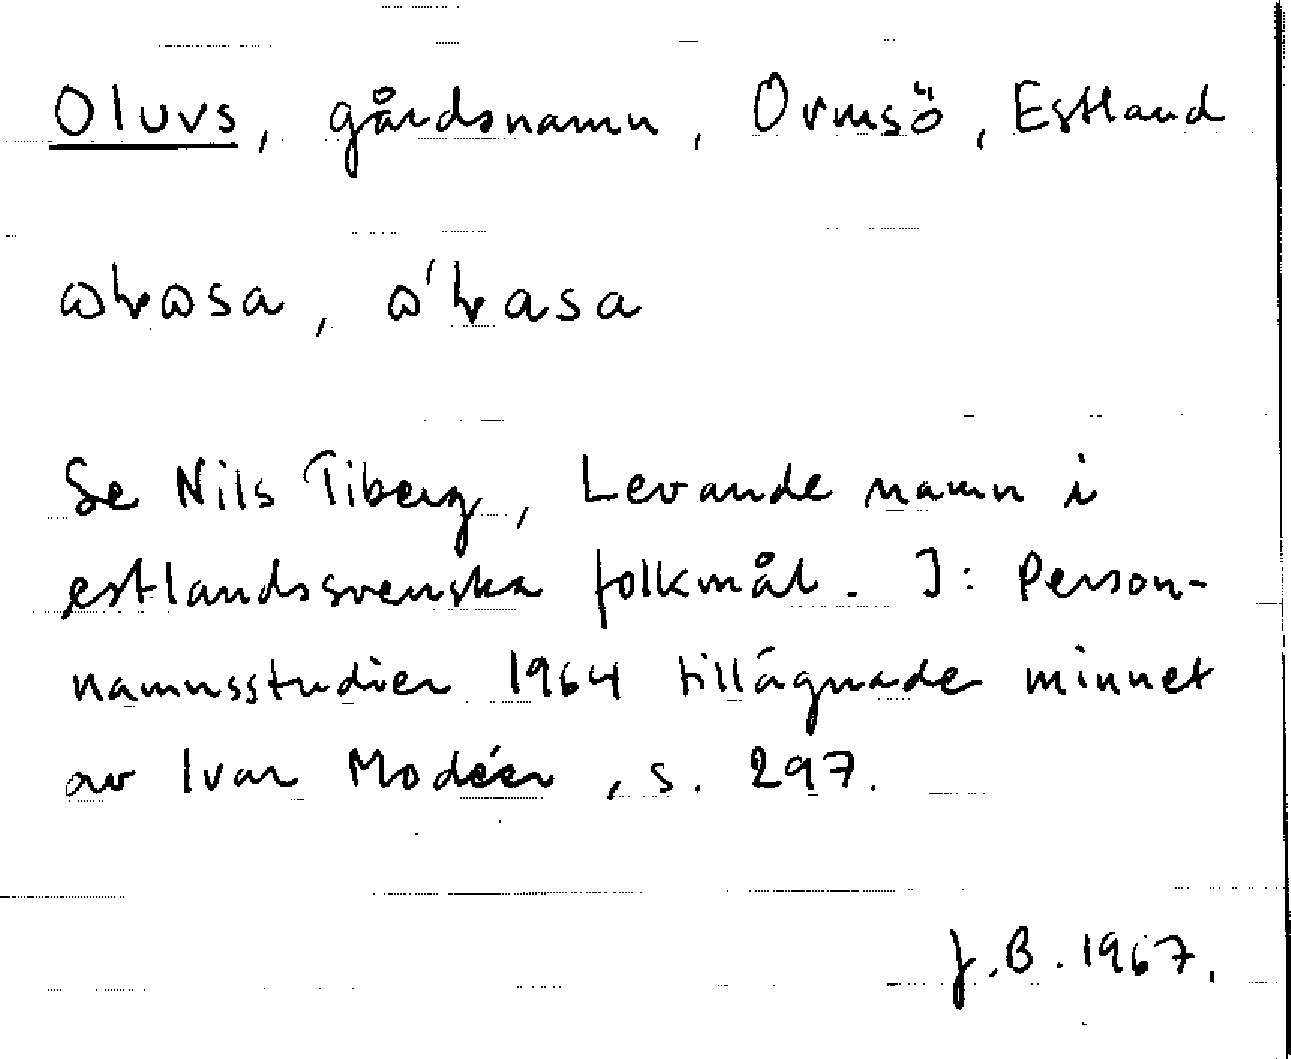 Oluvs, gårdsnamn, Ormsö, Estland
ɷꞎɷsa, ɷ'ꞎasa
Se Nils Tiberg, Levande namn i
estlandssvenska folkmål. I: Person-
namnsstudier 1964 tillägnade minnet
av Ivar Modéer, s. 297.
J.B. 1967.